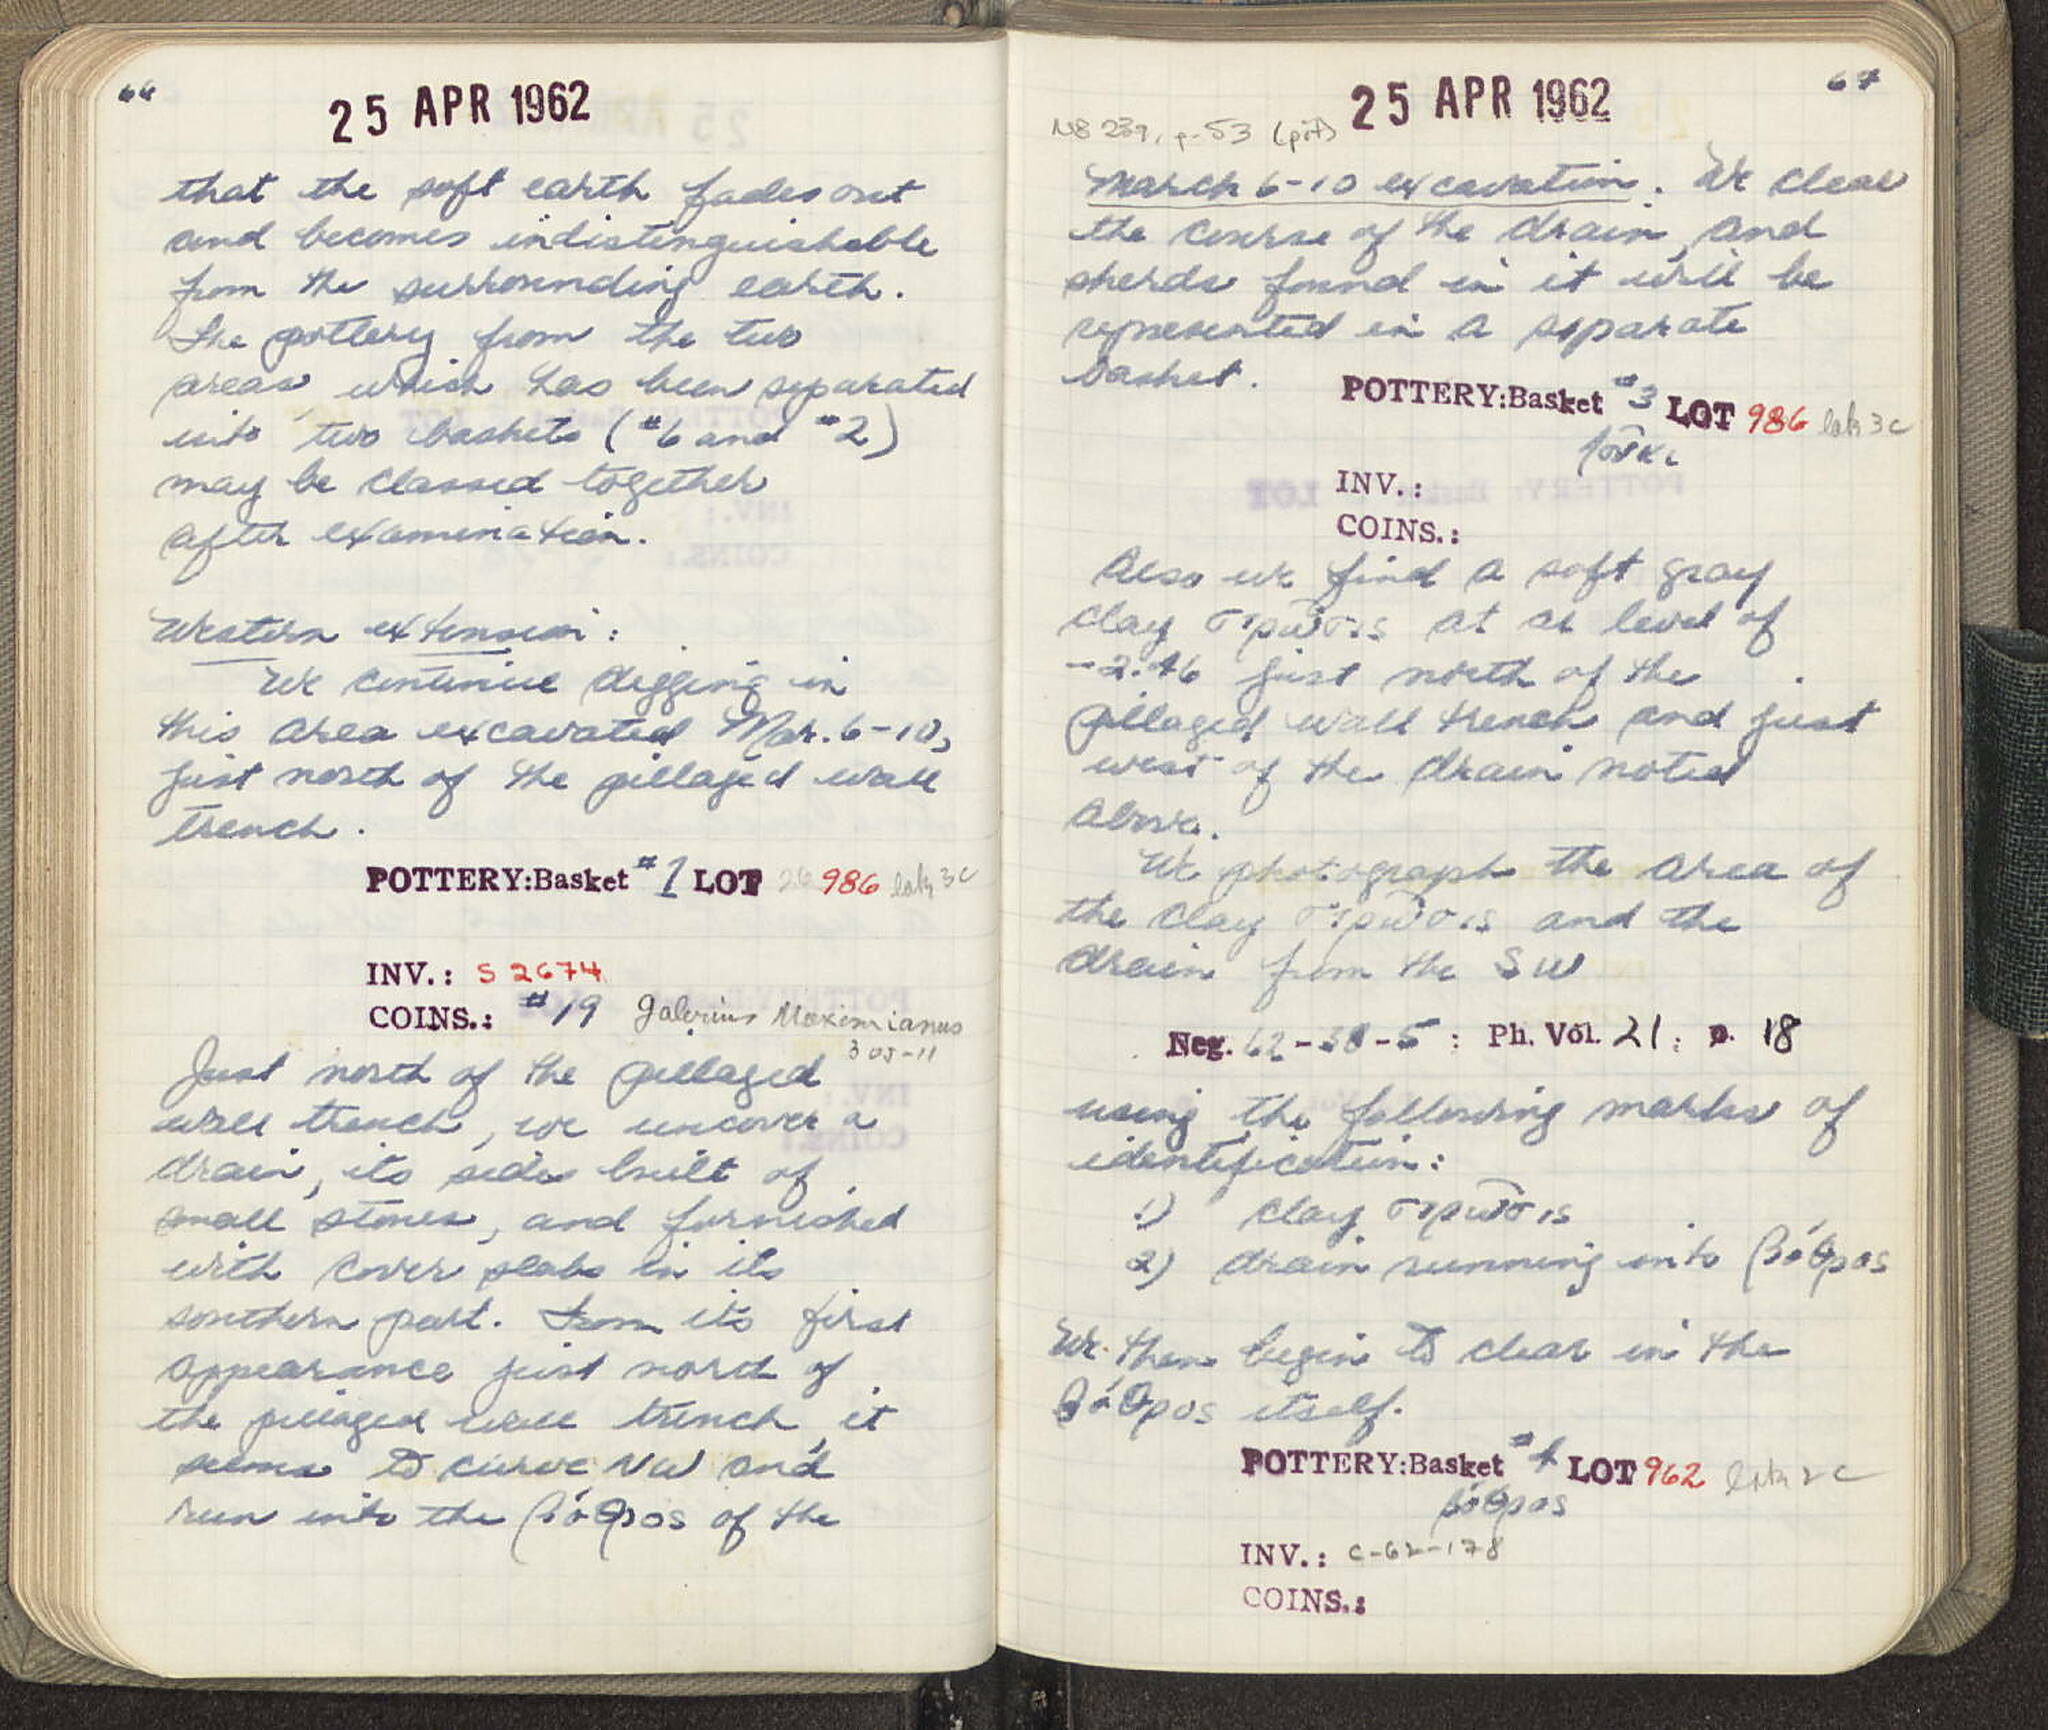 66
25 APR 1962
that the soft earth fades out
and becomes indistinguishable
from the surrounding earth.
The pottery from the two
areas which has been separated
into two baskets (#6 and #2)
may be classed together
after examination.
Western extension:
We continue digging in
this area excavated Mar. 6-10,
just north of the pillaged wall
trench.
POTTERY:Basket #1 LOT 986 late 3C
INV.: S 2674
COINS.: #19 Galerius Maximianus
305-11
Just north of the pillaged
wall trench, we uncover a
drain, its sides built of
small stones, and furnished
with cover slabs in its
southern part. From its first
appearance just north of
the pillaged wall trench, it
seems to curve NW and
run into the βόθρος of the
67
25 APR 1962
NB 239, p. 53 (pit)
March 6-10 excavation. We clear
the course of the drain, and
sherds found in it will be
represented in a separate
basket.
POTTERY:Basket #3 LOT 986 late 3C
INV.:
COINS.:
Also we find a soft gray
clay στρῶσις at a level of
-2.46 just north of the
pillaged wall trench and just
west of the drain noted
above.
We photograph the area of
the clay στρῶσις and the
drain from the SW
Neg. 62-38-5 : Ph. Vol. 21 : p. 18
using the following marks of
identification:
1) clay στρῶσις
2) drain running into βόθρος
We then begin to clear in the
βόθρος itself.
POTTERY:Basket #4 LOT 962 late 2C
βόθρος
INV.: C-62-178
COINS.: